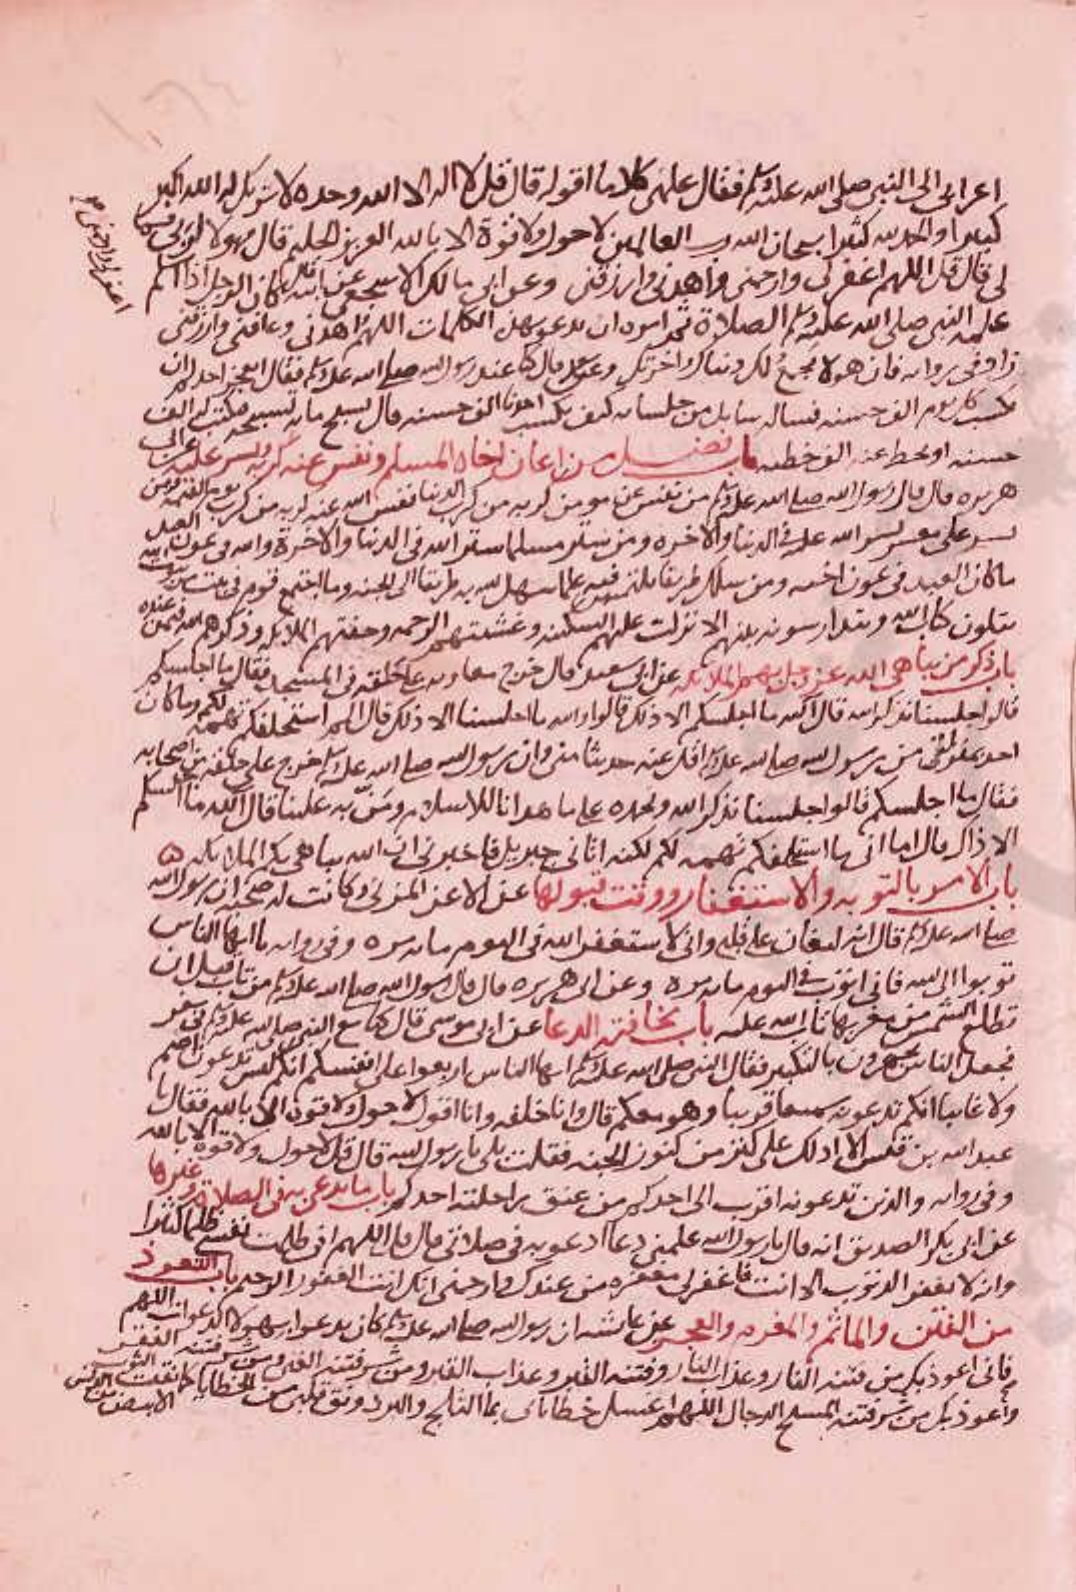 اعرابي الى النبي صلى الله عليه وسلم فقال علمني كلاما اقوله قال قل لا اله الا الله وحده لا شريك له الله اكبر
كبيرا والحمد لله كثيرا سبحان الله رب العالمين لا حول ولا قوة الا بالله العزيز الحكيم قال فهولا لربي فما
لي قال قل اللهم اغفر لي وارحمني واهدني وارزقني وعن ابي مالك الاشجعي عن ابيه قال كان الرجل اذا اسلم
علمه النبي صلى الله عليه وسلم الصلاة ثم امره ان يدعو بهذه الكلمات اللهم اهدني وعافني وارزقني
زاد في رواية فان هولا تجمع لك دنياك واخرتك وعن سعد قال كنا عند رسول الله صلى الله عليه وسلم فقال ايعجز احدكم ان
يكسب كل يوم الف حسنه فساله سايل من جلسايه كيف يكسب احدنا الف حسنه قال يسبح مايه تسبيحه فيكتب له الف
حسنه او يحط عنه الف خطيه باب فضل من اعان اخاه المسلم ونفس عنه كربه ويسر عليه عن ابي
هريره قال قال رسول الله صلى الله عليه وسلم من نفس عن مومن كربه من كرب الدنيا نفس الله عنه كربه من كرب يوم القيمه ومن
يسر على معسر يسر الله عليه في الدنيا والاخره ومن ستر مسلما ستر الله في الدنيا والاخرة والله في عون العبد
ماكان العبد في عون اخيه ومن سلك طريقا يلتمس فيه علما سهل الله به طريقا الى الجنه وما اجتمع قوم في بيت من بيوت الله
يتلون كتاب الله ويتدارسونه بينهم الا نزلت عليهم السكينه وغشيتهم الرحمه وحفتهم الملايكه وذكرهم الله فيمن عنده
باب ذكر من يباهي الله عز وجل بهم الملايكه عن ابي سعيد قال خرج معاويه على حلقه في المسجد فقال ما اجلسكم
قالوا جلسنا نذكر الله قال الله ما اجلسكم الا ذلك قالوا والله ما اجلسنا الا ذلك قال اما اني لم استحلفكم تهمه لكم وما كان
احد بمنزلتي من رسول الله صلى الله عليه وسلم اقل عنه حديثا مني وان رسول الله صلى الله عليه وسلم خرج على حلقه من اصحابه
فقال ما اجلسكم قالوا جلسنا نذكر الله ونحمده على ما هدانا للاسلام ومن به علينا قال الله ما اجلسكم
الا ذاك قال اما اني لم استحلفكم تهمه لكم لكنه اتاني جبريل فاخبرني ان الله يباهي بكم الملايكه
باب الامر بالتوبه والاستغفار ووقت قبولها عن الاغر المزني وكانت له صحبه ان رسول الله
صلى الله عليه وسلم قال انه ليغان على قلبي واني لاستغفر الله في اليوم مايه مره وفي روايه يا ايها الناس
توبوا الى الله فاني اتوب في اليوم مايه مره وعن ابي هريره قال قال رسول الله صلى الله عليه وسلم من تاب قبل ان
تطلع الشمس من مغربها تاب الله عليه باب مخافته الدعا عن ابي موسى قال كنا مع النبي صلى الله عليه وسلم في سفر
فجعل الناس يجهرون بالتكبير فقال النبي صلى الله عليه وسلم ايها الناس اربعوا على انفسكم انكم ليس تدعون اصم
ولا غايبا انكم تدعونه سميعا قريبا وهو معكم قال وانا خلفه وانا اقول لا حول ولا قوه الا بالله فقال يا
عبد الله بن قيس الا ادلك على كنز من كنوز الجنه فقلت بلى يا رسول الله قال قل لا حول ولا قوه الا بالله
وفي روايه والذين تدعونه اقرب الى احدكم من عنق راحلته احدكم باب ما يدعى به في الصلاة وغيرها
عن ابي بكر الصديق انه قال يا رسول الله علمني دعا ادعو به في صلاتي قال قل اللهم اني ظلمت نفسي ظلما كثيرا
وانه لا يغفر الذنوب الا انت فاغفر لي مغفره من عندك وارحمني انك انت الغفور الرحيم باب التعوذ
من الفتن والماثم والمغرم والعجز عن عايشه ان رسول الله صلى الله عليه وسلم كان يدعوا بهولا الدعوات اللهم
فاني اعوذ بك من فتنه النار وعذاب النار وفتنه القبر وعذاب القبر ومن شر فتنه الغنى ومن شر فتنه الفقر
واعوذ بك من شر فتنه المسيح الدجال اللهم اغسل خطاياي بما الثلج والبرد ونق قلبي من الخطايا كما نقيت الثوب الابيض من الدنس